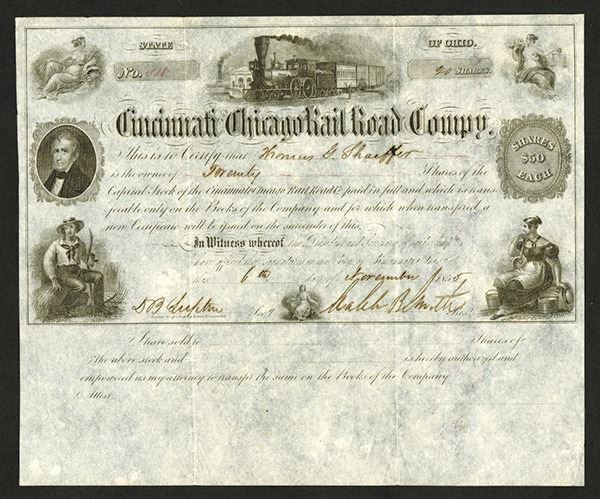 STATE OF OHIO.
No. 518 20 SHARES.
Cincinnati & Chicago Rail Road Compy.
SHARES $50 EACH
This is to Certify that Thomas G. Shaeffer
is the owner of Twenty Shares of the
Capital Stock of the Cincinnati & Chicago Rail Road Co. paid in full and which is trans-
ferable only on the Books of the Company and for which when transferred, a
new Certificate will be issued on the surrender of this
In Witness whereof the President and Secretary of said Compy
have affixed signatures
this 6th day of November 1855
D B Lupton Sec'y Caleb B. Smith Pres.
Share sold to Shares of
the above stock and is hereby authorized and
empowered as my attorney to transfer the same on the Books of the Company
Attest